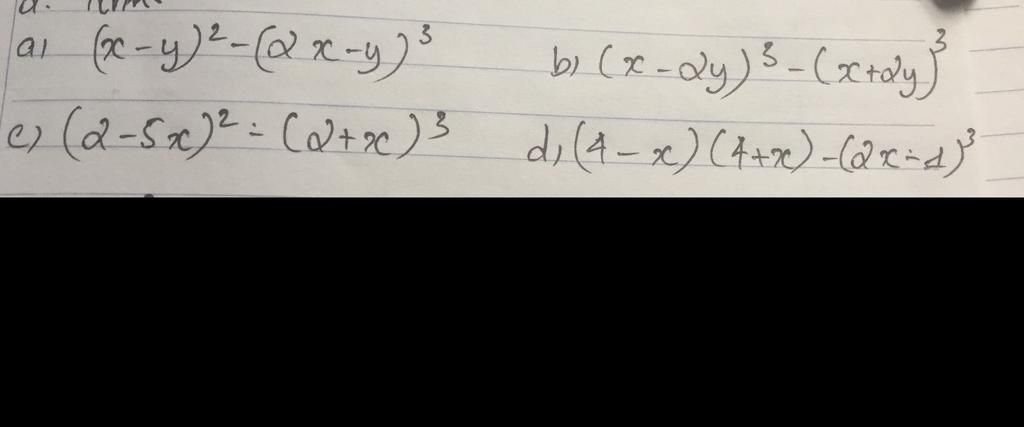 a) (x-y)² - (2x-y)³ b) (x-2y)³ - (x+2y)³
c) (2-5x)² - (2+x)³ d) (4-x)(4+x) - (2x-1)³